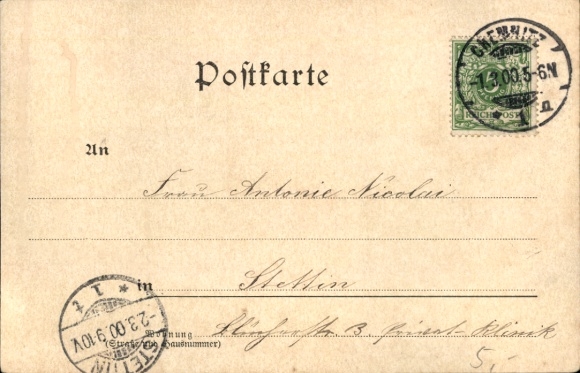 Postkarte
CHEMNITZ
1.3.00.5-6N
* 1 n
REICHSPOST
An
Frau Antonie Nicolai
in
Stettin
STETTIN
-2.3.00.9-10V
* 1 t
Wohnung
(Straße und Hausnummer)
3. Privat-Klinik
5,-